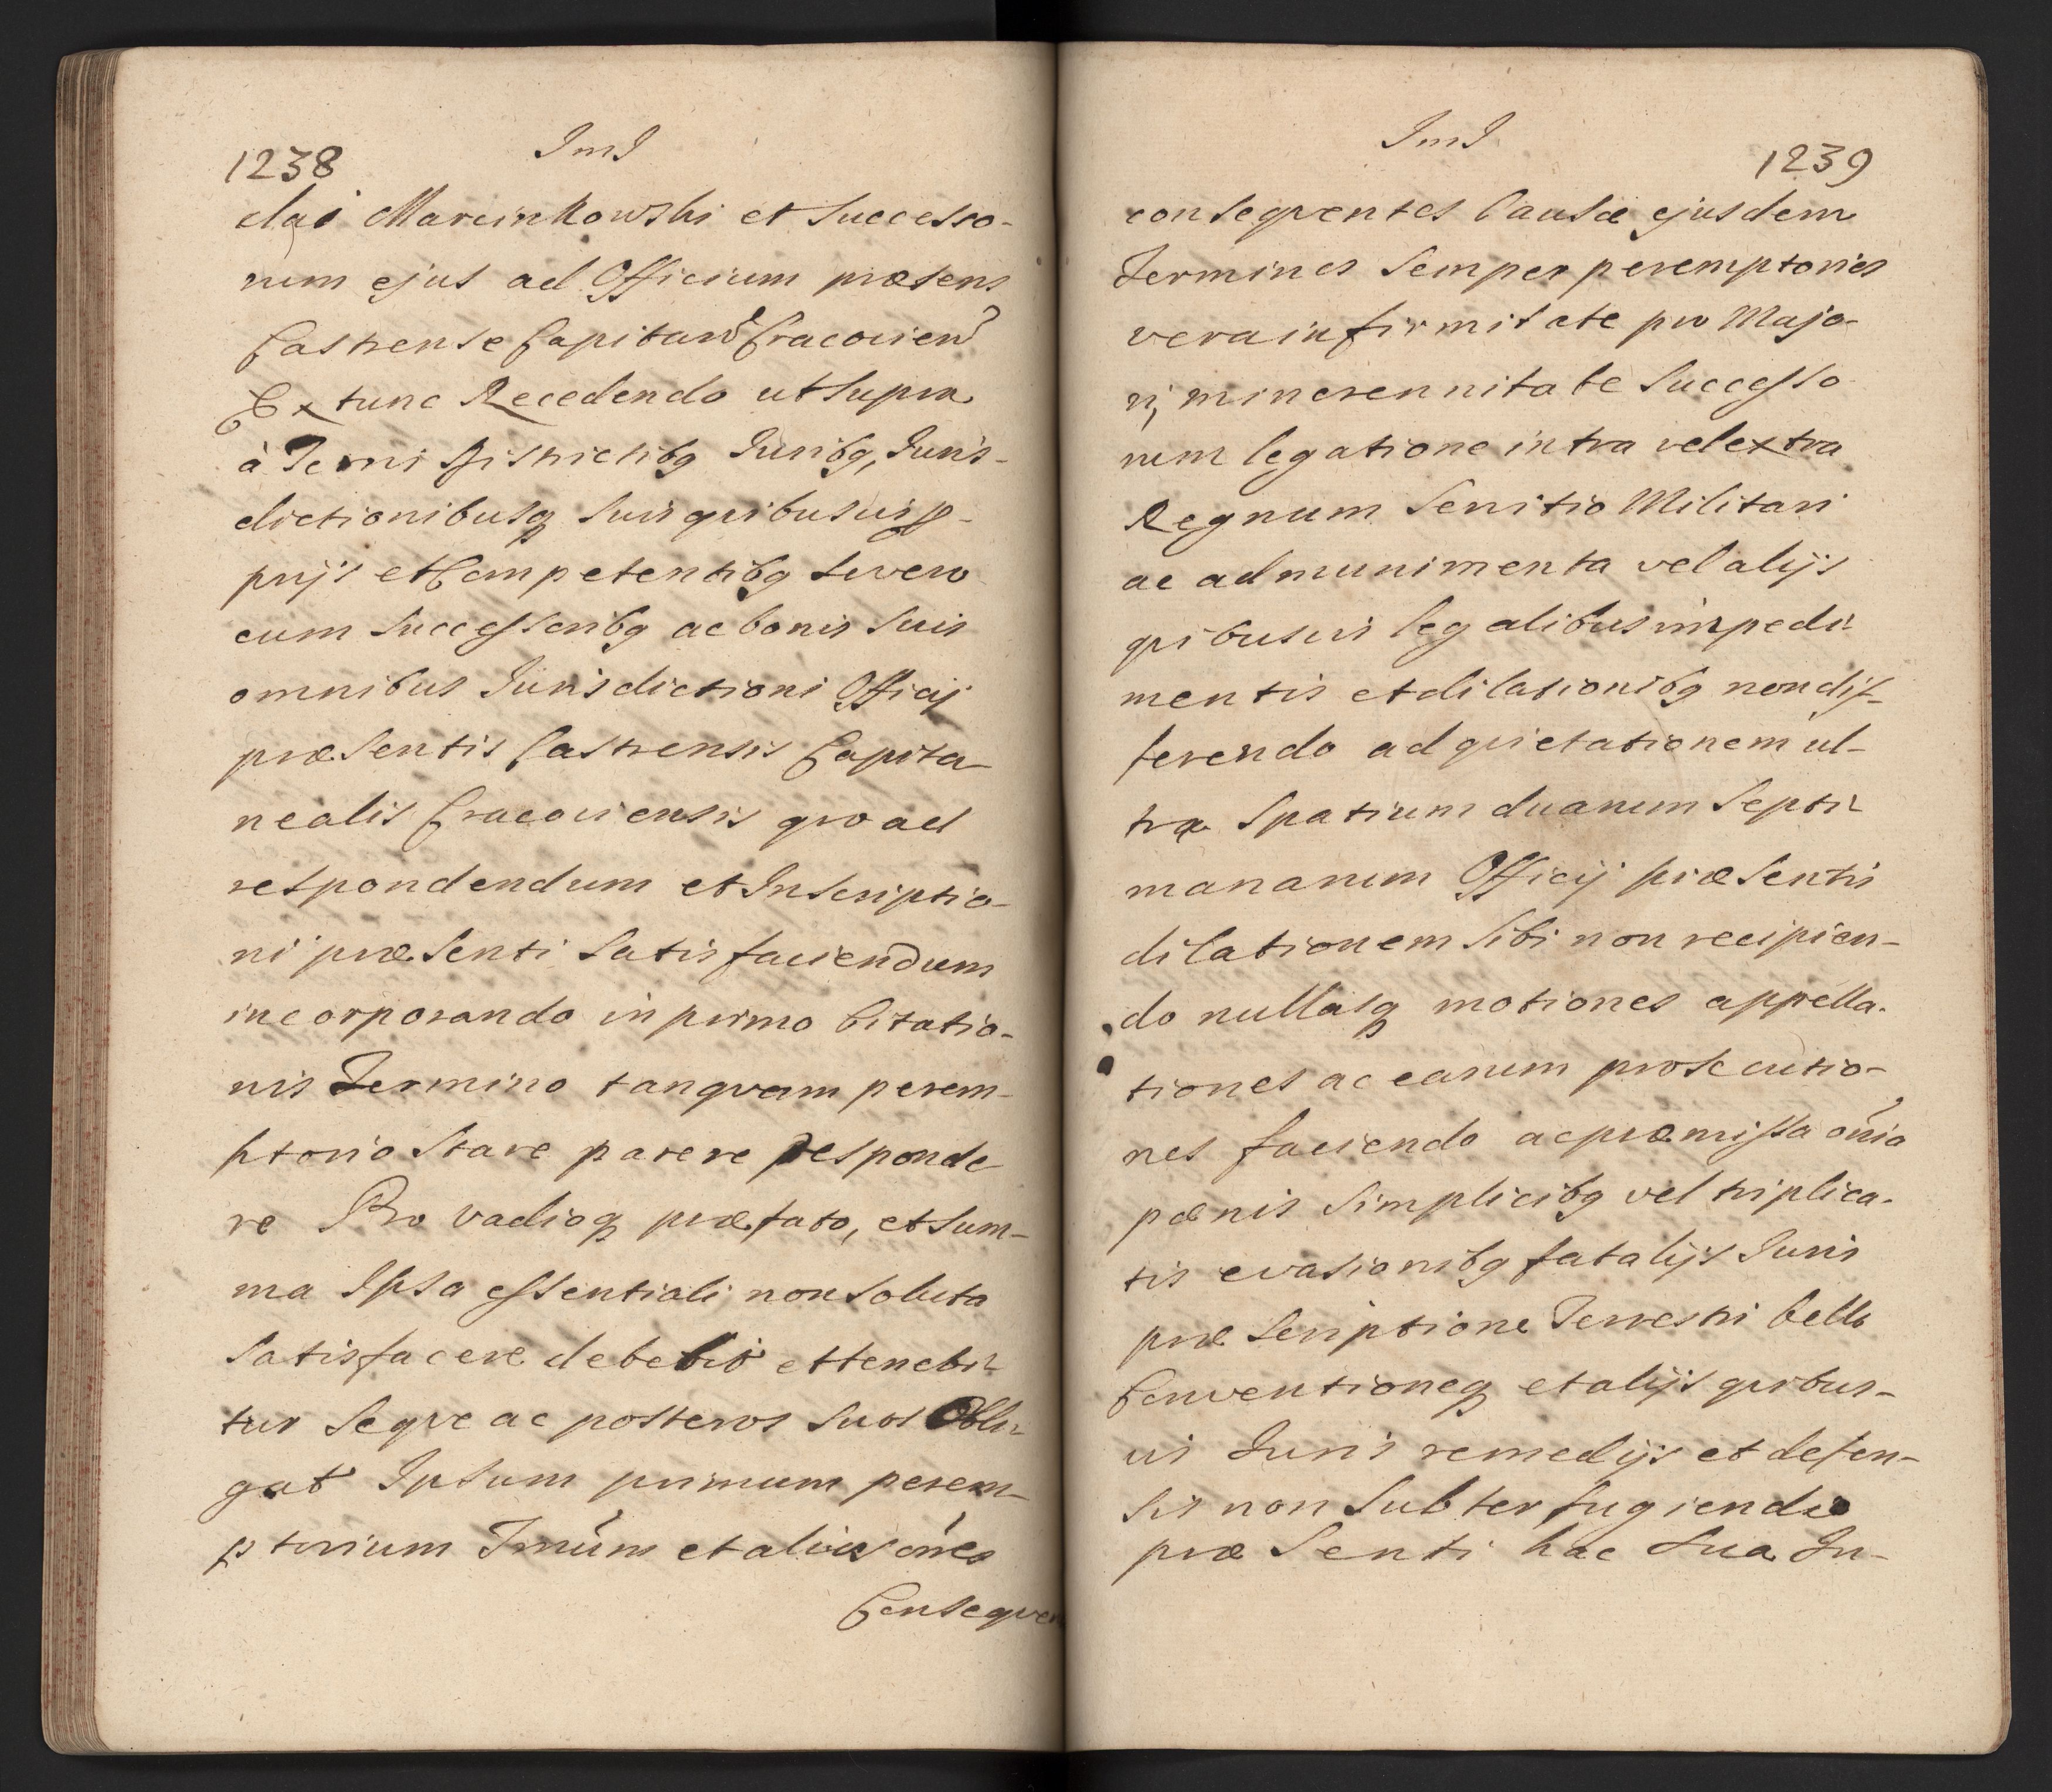 1238
JmJ
dai Marcinkowski et Successo-
rum ejus ad Officium præsens
Castrense Capitan Cracovien
Extunc Recedendo ut supra
à Terris Districtibq Juribq, Juris-
dictionibusq suis quibusvis pro-
prijs et Competentibq se vero
cum Successoribq ac bonis suis
omnibus Jurisdictioni Officij
præsentis Castrensis Capita-
nealis Cracoviensis quo ad
respondendum et Inscriptio-
ni præsenti Satisfaciendum
incorporando in primo Citatio-
nis Termino tanqvam perem-
ptorio Stare parere responde-
re Pro vadioq præfato, et Sum-
ma Ipsa essentiali non Soluta
Satisfacere debebit et tenebi-
tur Seqve ac posteros suos Obli-
gat Ipsum primum perem-
ptorium Trnúm et alios ónes
Conseqven
JmJ
1239
conseqventes Causæ ejusdem
Terminos Semper peremptorios
vera infirmitate pro Majo-
ri, minorennitate Successo-
rum legatione intra vel extra
Regnum Servitio Militari
ac ad munimenta vel alijs
quibusvis legalibus impedi-
mentis et dilationibq non dif-
ferendo ad quietationem ul-
tra Spatium duarum Septi-
manarum Officij præsentis
dilationem Sibi non recipien-
do nullasq motiones appella-
tiones ac earum prosecutio-
nes faciendo ac præmissa oḿia
pænis Simplicibq vel triplica-
tis evasionibq fatalijs Juris
præscriptione Terrestri bello
Conventioneq et alijs quibus-
vis Juris remedijs et defen-
sis non Subterfugiendo
præsenti hac Sua In-